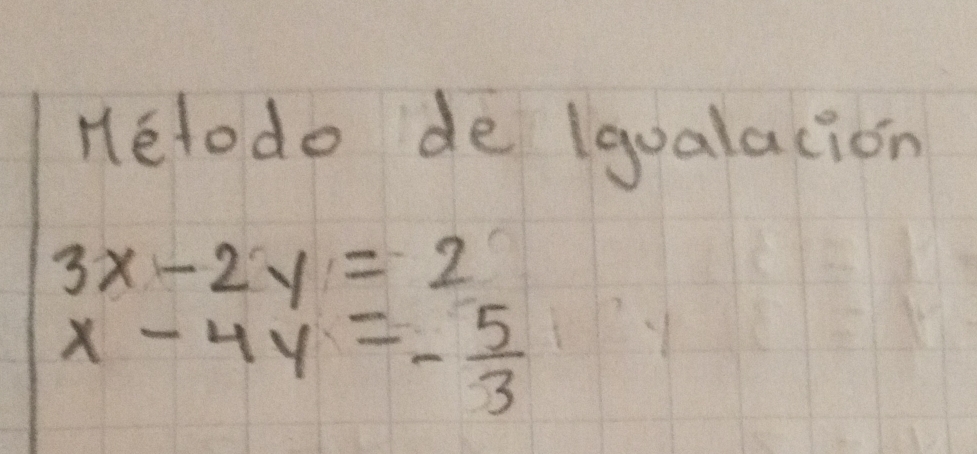 Método de Igualación
3x - 2y = 2
x - 4y = - 5/3